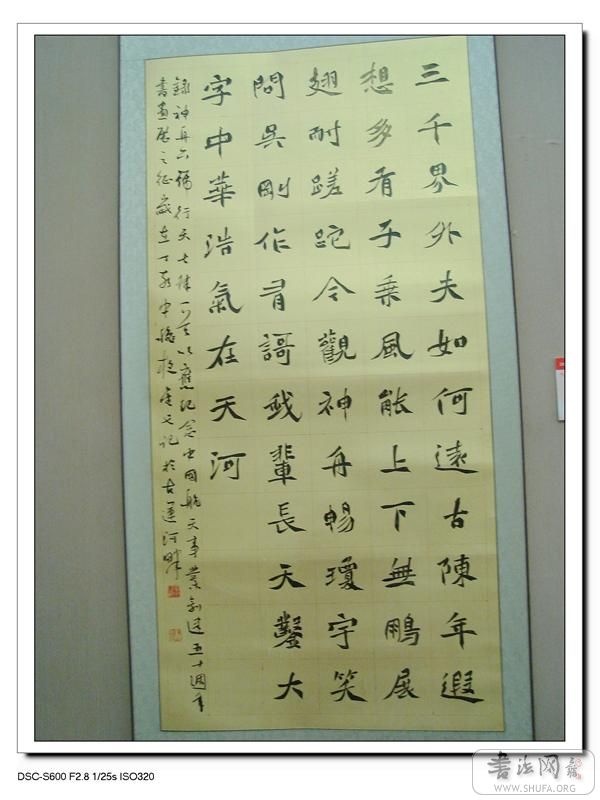 三千界外夫如何遠古陳年遐
想多有子乘風能上下無鵬展
翅耐蹉跎今觀神舟暢瓊宇笑
問吳剛作有謌我輩長天鑿大
字中華浩氣在天河
錄神舟六號行天七律一首以應紀念中國航天事業創建五十週年
書畫展之征歲在丁亥中秋記於古運河畔
DSC-S600 F2.8 1/25s ISO320
书法网
WWW.SHUFA.ORG